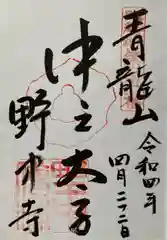 青龍山
令和四年
四月二十二日
中之太子
野中寺